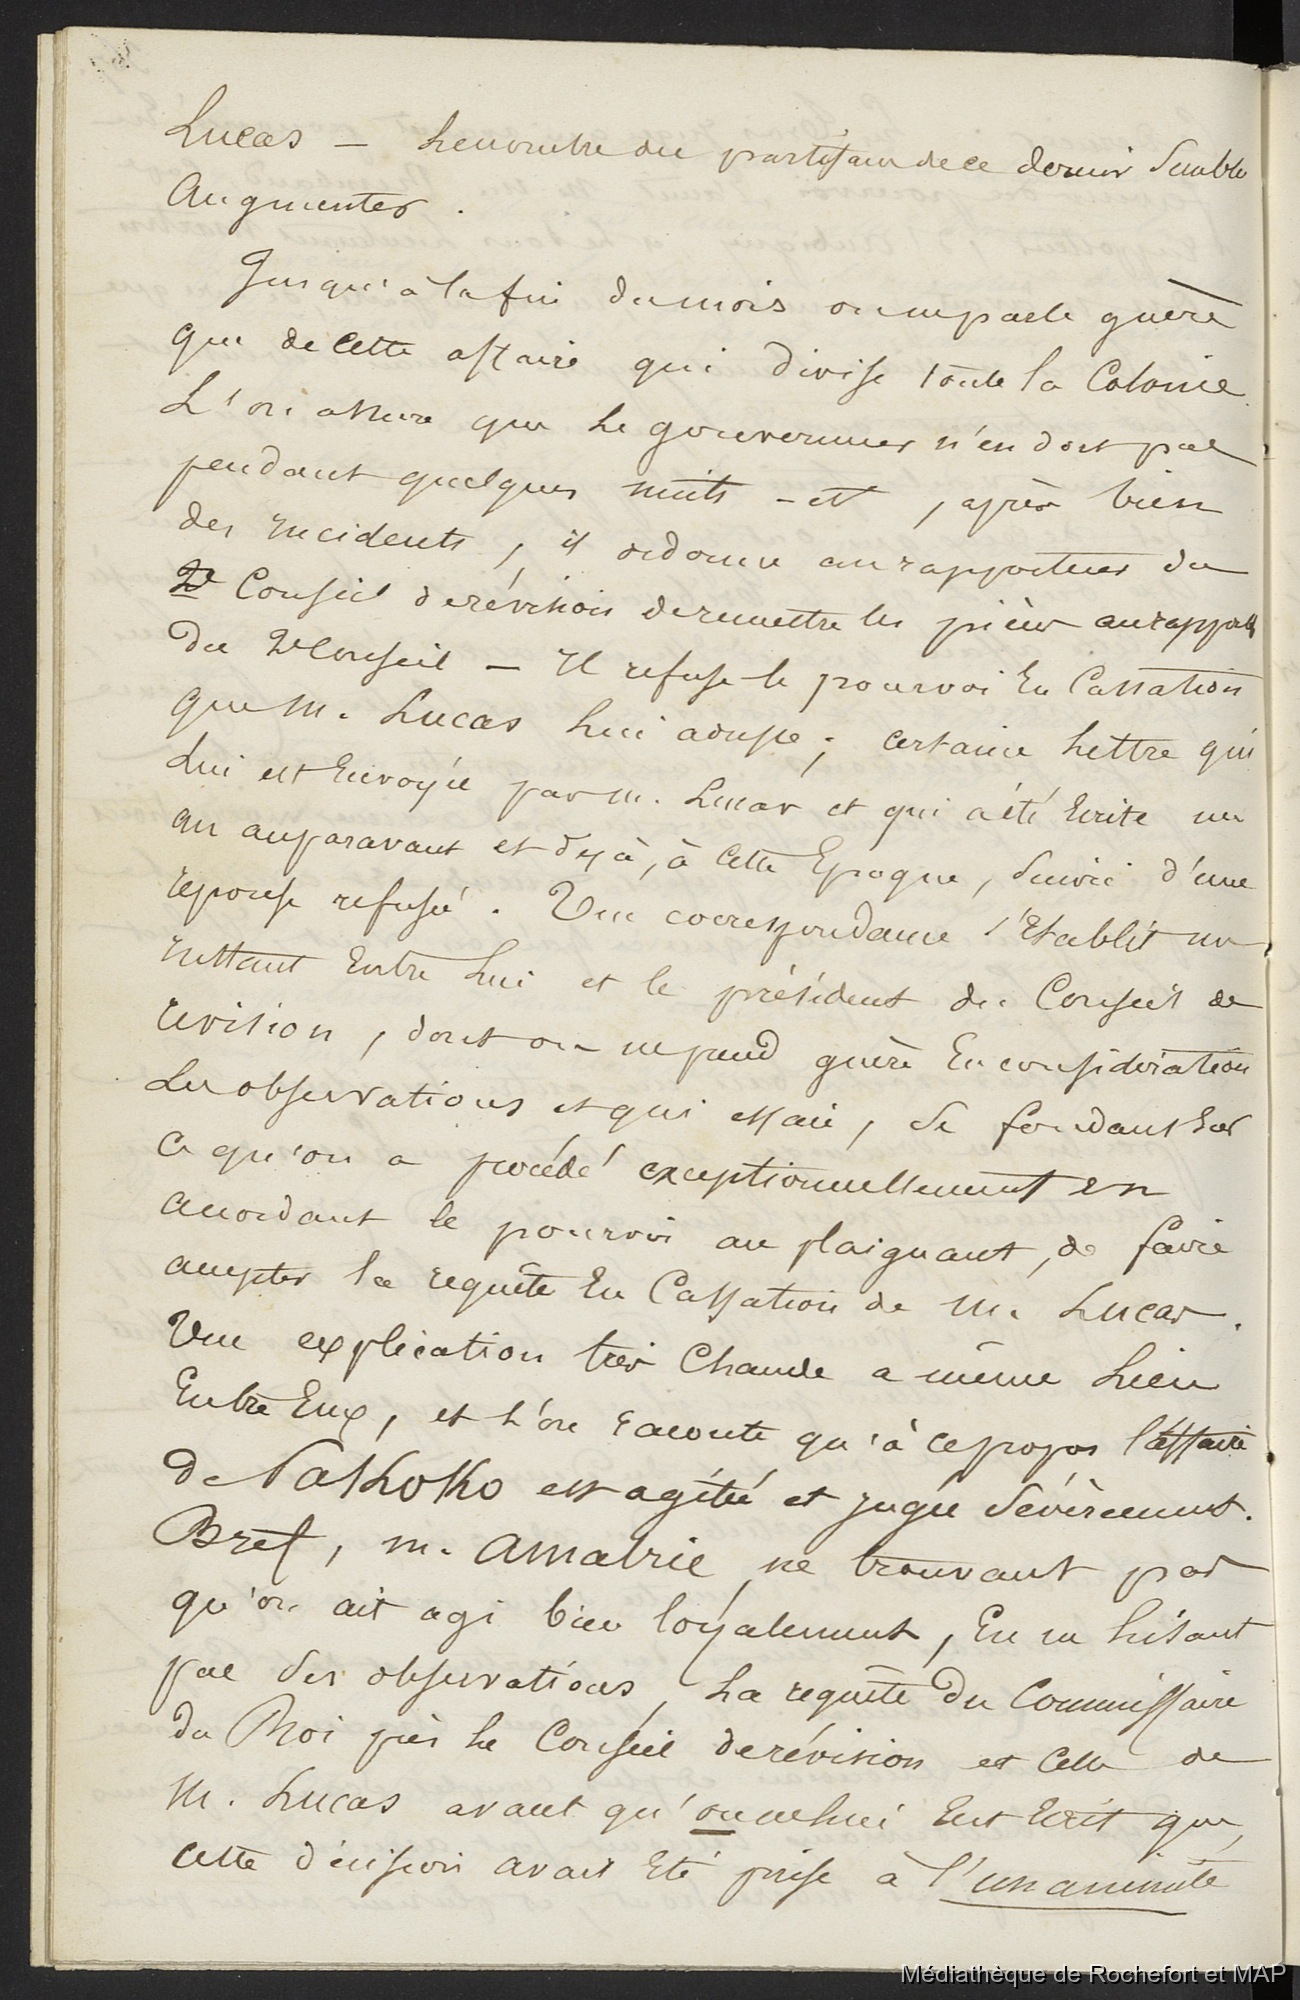 Lucas — Le nombre des partisans de ce dernier semble
Augmenter.
Jusqu'à la fin du mois on ne parle guère
que de cette affaire qui divise toute la Colonie.
L'on assure que le gouverneur n'en dort pas
pendant quelques nuits - et, après bien
des incidents, il ordonne au rapporteur du
Conseil de révision de remettre les pièces au rappor
du 2e Conseil — Il refuse le pourvoi En Cassation
que M. Lucas lui adresse; certaine lettre qui
Lui est Envoyée par M. Lucas et qui a été Ecrite un
an auparavant et déjà, à cette Epoque, suivie d'une
réponse refusée. Une correspondance s'Etablit un
instant Entre Lui et le président du Conseil de
révision, dont on ne prend guère En considération
Les observations et qui essaie, se fondant sur
ce qu'on a procédé exceptionnellement en
accordant le pourvoi au plaignant, de faire
accepter la requête En Cassation de M. Lucas.
Une explication très Chaude a même Lieu
Entre Eux, et l'on raconte qu'à ce propos l'affaire
de Nakhokho est agitée et jugée sévèrement.
Bref, M. Amalric ne trouvant pas
qu'on ait agi bien loyalement, En ne lisant
pas ses observations, La requête du Commissaire
du Roi près le Conseil de révision et Celle de
M. Lucas avant qu'on ne lui Eut Ecrit que,
cette décision avait Eté prise à l'unanimité
Médiathèque de Rochefort et MAP